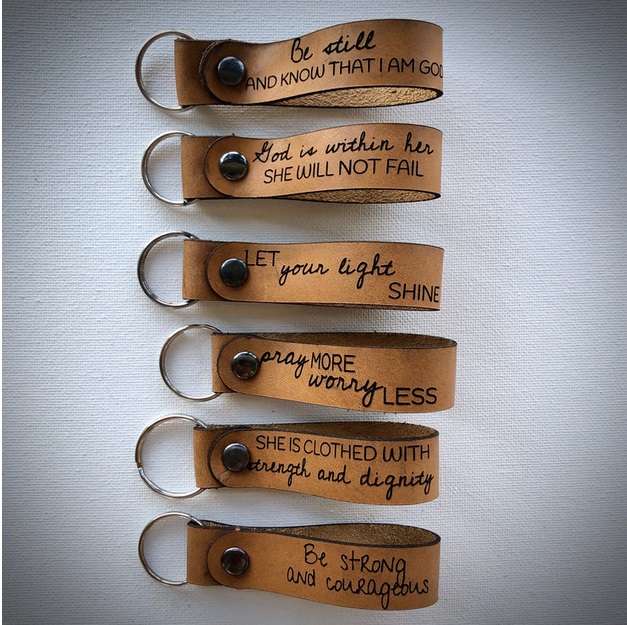 Be still
AND KNOW THAT I AM GOD
God is within her
SHE WILL NOT FAIL
LET
your light
SHINE
pray MORE
worry LESS
SHE IS CLOTHED WITH
strength and dignity
Be STRONG
and courageous